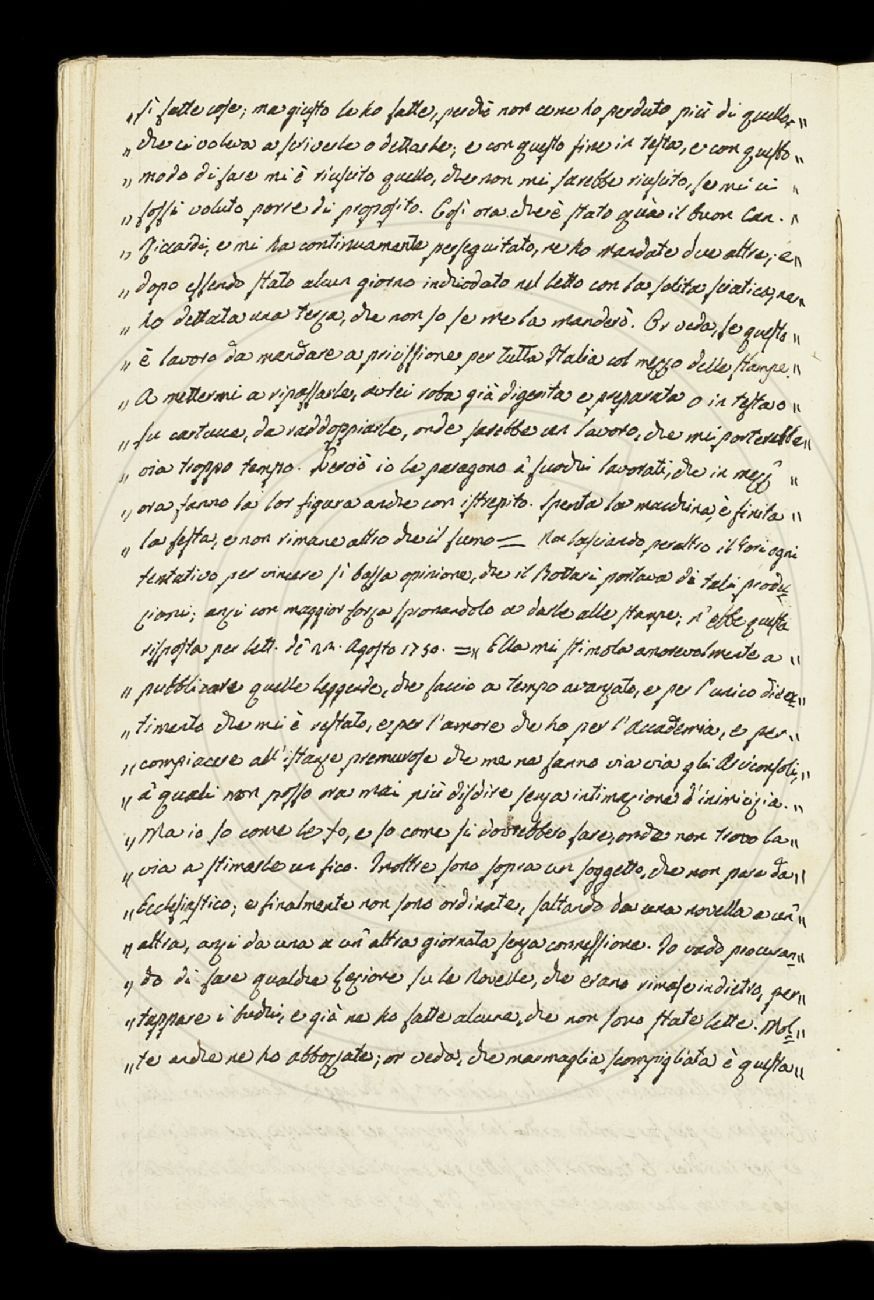 „ sì fatte cose; ma giusto le ho fatte, perchè non ce ne ho perduto più di quello, „
„ che ci voleva a scriverle o dettarle; e con questo fine in testa, e con questo „
„ modo di fare mi è riuscito quello, che non mi sarebbe riuscito, se mi ci „
„ fossi voluto porre di proposito. Così ora che è stato quà il buon Can. „
„ Riccardi, e mi ha continuamente perseguitato, ne ho mandate due altre; e „
„ dopo essendo stato alcun giorno inchiodato nel letto con la solita sciatica, ne „
„ ho dettata una terza, che non so se me la manderò. Or veda, se questo „
„ è lavoro da mandare a pricissione per tutta Italia col mezzo delle stampe. „
„ A mettermi a ripassarle, avrei roba già digerita e preparata o in testa o „
„ su cartucce, da raddoppiarle, onde sarebbe un lavoro, che mi porterebbe „
„ via troppo tempo. Perciò io le paragono a' fuochi lavorati, che in mezz' „
„ ora fanno la lor figura anche con istrepito. Spenta la macchina, è finita „
„ la festa, e non rimane altro che il fumo = Non lasciando peraltro il Gori ogni
tentativo per vincere sì bassa opinione, che il Bottari portava di tali produ=
zioni; anzi con maggior forza spronandolo a darle alle stampe; n' ebbe questa
risposta per lett. de' Agosto 1750. = „ Ella mi stimola amorevolmente a „
„ pubblicare quelle leggende, che faccio a tempo avanzato, e per l'unico diver= „
„ timento che mi è restato, e per l'amore che ho per l'Accademia, e per „
„ compiacere all' istanze premurose che me ne fanno via via gli Arciconsoli, „
„ a' quali non posso ora mai più disdire senza intimazione d'inimicizia. „
„ Ma io so come le fo, e so come si dovrebbero fare, onde non trovo la „
„ via a stimarle un fico. Inoltre sono sopra un soggetto, che non pare da „
„ Ecclesiastico; e finalmente non sono ordinate, saltando da una novella a un' „
„ altra, anzi da una a un' altra giornata senza connessione. Io vado procuran= „
„ do di fare qualche Lezione su le Novelle, che erano rimase indietro, per „
„ tappare i buchi, e già ne ho fatte alcune, che non sono state lette. Mol= „
„ te anche ne ho abbozzate; or veda, che marmaglia scompigliata è questa „